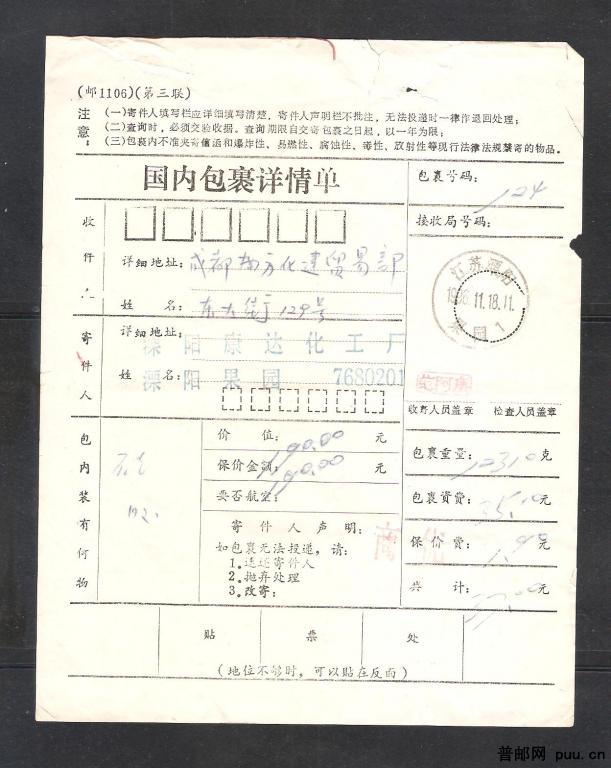 (邮1106)(第三联)
注意:
(一)寄件人填写栏应详细填写清楚,寄件人声明栏不批注,无法投递时一律作退回处理;
(二)查询时,必须交验收据。查询期限自交寄包裹之日起,以一年为限;
(三)包裹内不准夹寄信函和爆炸性、易燃性、腐蚀性、毒性、放射性等现行法律法规禁寄的物品。
国内包裹详情单
包裹号码:
124
接收局号码:
收件人
详细地址: 成都 化建贸易部
姓 名: 东大街129号
江苏溧阳
1996.11.18.11
果园 1
寄件人
详细地址:
溧阳康达化工厂
姓 名:
溧阳果园 7680201
收寄人员盖章 检查人员盖章
包内装有何物
价 值: 190.00 元
保价金额: 190.00 元
要否航空:
包裹重量: 12310 克
包裹资费: 35.10 元
保价费: 1.90 元
共 计: 37.00 元
寄件人声明:
如包裹无法投递,请:
1.退还寄件人
2.抛弃处理
3.改寄:
商化
贴 票 处
(地位不够时,可以贴在反面)
普邮网 puu.cn